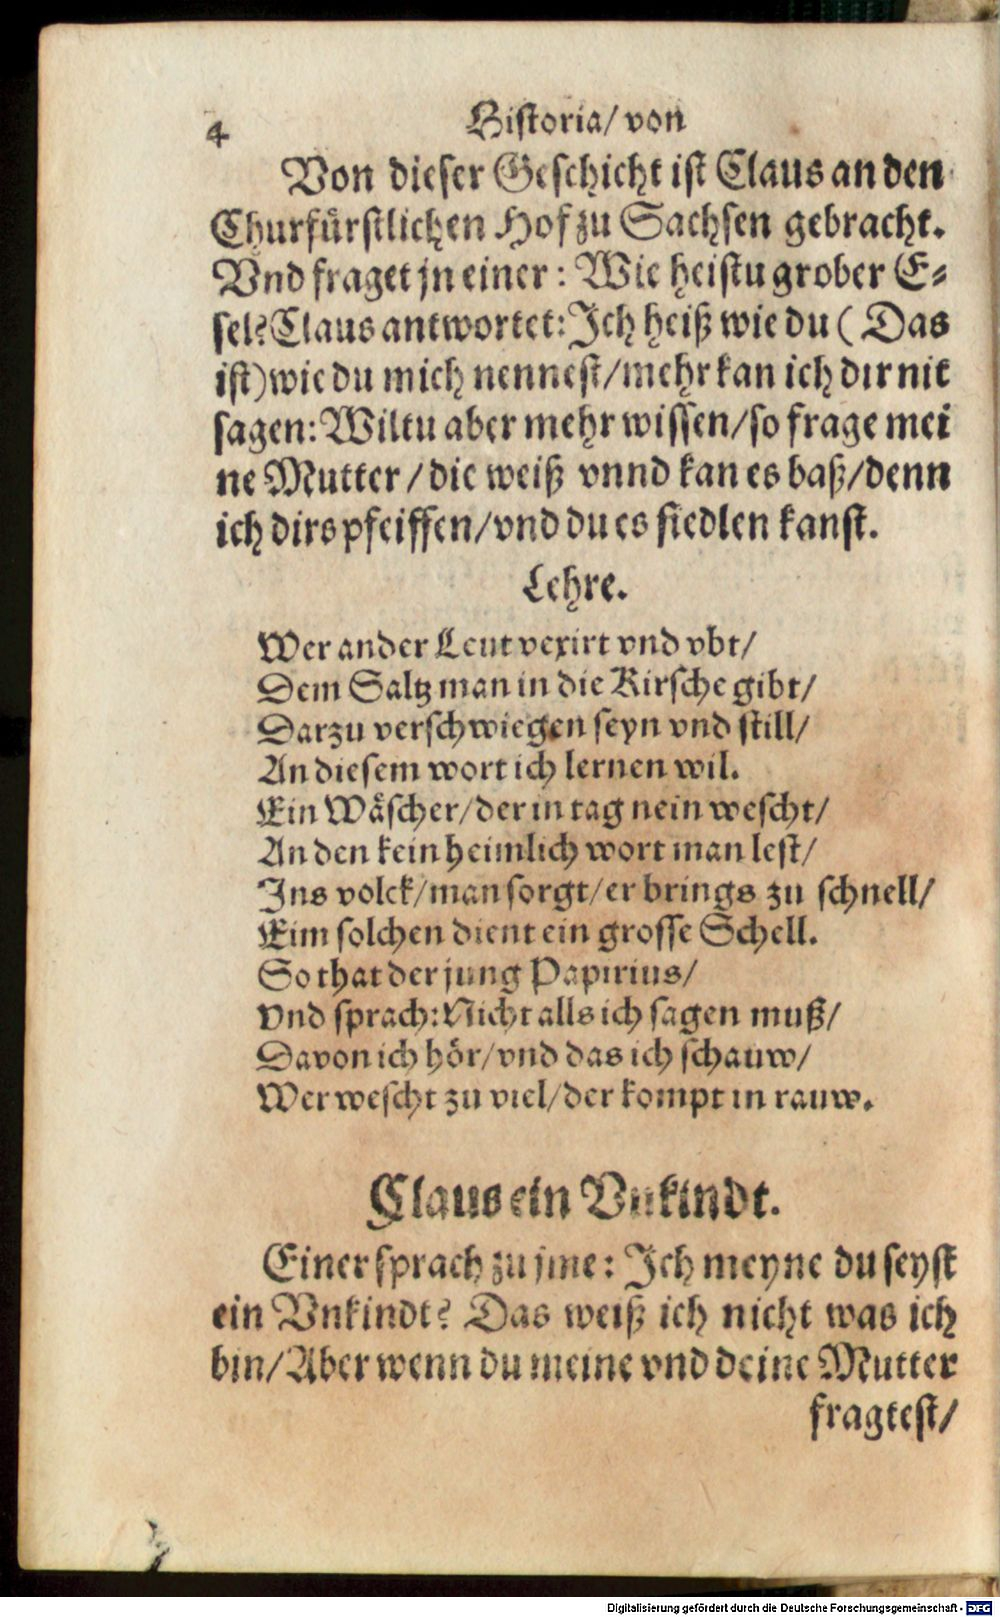 4 Historia/ von
Von dieser Geschicht ist Claus an den
Churfürstlichen Hof zu Sachsen gebracht.
Vnd fraget jn einer: Wie heistu grober E-
sel? Claus antwortet: Ich heiß wie du (Das
ist) wie du mich nennest/ mehr kan ich dir nit
sagen: Wiltu aber mehr wissen/ so frage mei
ne Mutter/ die weiß vnnd kan es baß/ denn
ich dirs pfeiffen/ vnd du es fiedlen kanst.
Lehre.
Wer ander Leut vexirt vnd vbt/
Dem Saltz man in die Kirsche gibt/
Darzu verschwiegen seyn vnd still/
An diesem wort ich lernen wil.
Ein Wäscher/ der in tag nein wescht/
An den kein heimlich wort man lest/
Ins volck/ man sorgt/ er brings zu schnell/
Eim solchen dient ein grosse Schell.
So that der jung Papirius/
Vnd sprach: Nicht alls ich sagen muß/
Davon ich hör/ vnd das ich schauw/
Wer wescht zu viel/ der kompt in rauw.
Claus ein Vnkindt.
Einer sprach zu jme: Ich meyne du seyst
ein Vnkindt? Das weiß ich nicht was ich
bin/ Aber wenn du meine vnd deine Mutter
fragtest/
Digitalisierung gefördert durch die Deutsche Forschungsgemeinschaft - DFG